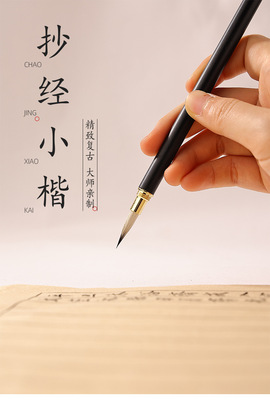 抄经小楷
CHAO
JING
XIAO
KAI
精致复古 大师亲制